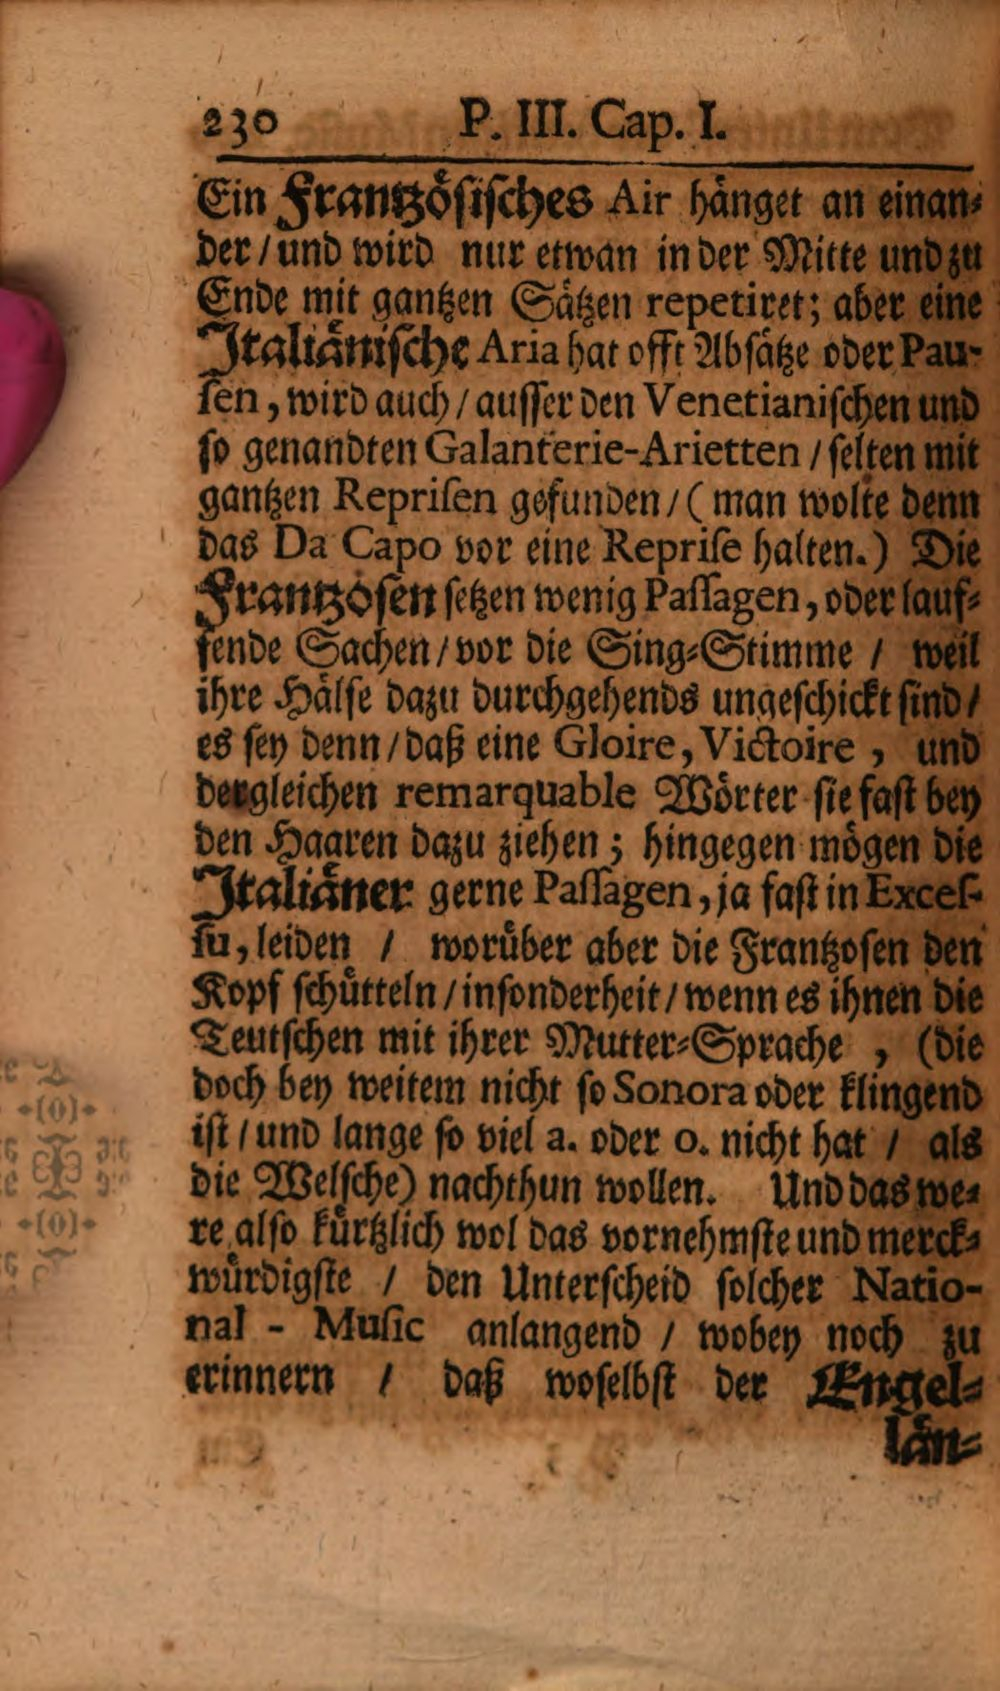 230 P. III. Cap. I.
Ein Frantzösisches Air hänget an einan-
der / und wird nur etwan in der Mitte und zu
Ende mit gantzen Sätzen repetiret; aber eine
Italiänische Aria hat offt Absätze oder Pau-
sen, wird auch / ausser den Venetianischen und
so genandten Galanterie-Arietten / selten mit
gantzen Reprisen gefunden / ( man wolte denn
das Da Capo vor eine Reprise halten.) Die
Frantzosen setzen wenig Passagen, oder lauf-
fende Sachen / vor die Sing-Stimme / weil
ihre Hälse dazu durchgehends ungeschickt sind /
es sey denn / daß eine Gloire, Victoire , und
dergleichen remarquable Wörter sie fast bey
den Haaren dazu ziehen ; hingegen mögen die
Italiäner gerne Passagen, ja fast in Exces-
su, leiden / worüber aber die Frantzosen den
Kopf schütteln / insonderheit / wenn es ihnen die
Teutschen mit ihrer Mutter-Sprache , (die
doch bey weitem nicht so Sonora oder klingend
ist / und lange so viel a. oder o. nicht hat / als
die Welsche) nachthun wollen. Und das we-
re also kürtzlich wol das vornehmste und merck-
würdigste / den Unterscheid solcher Natio-
nal - Music anlangend / wobey noch zu
erinnern / daß woselbst der Engel-
län-